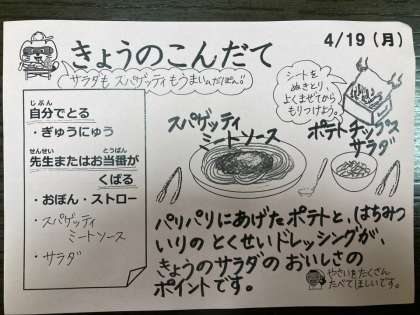 きょうのこんだて
4/19（月）
サラダも スパゲッティ もうまいんだぽん!!
じぶん
自分でとる
・ぎゅうにゅう
せんせい とうばん
先生またはお当番が
くばる
・おぼん・ストロー
・スパゲッティ
ミートソース
・サラダ
シートを
ぬきとり、
よくまぜてから
もりつけよう。
スパゲッティ
ミートソース
ポテトチップス
サラダ
パリパリにあげたポテトと、はちみつ
いりの とくせいドレッシングが、
きょうのサラダの おいしさの
ポイントです。
やさいをたくさん
たべてほしいです。